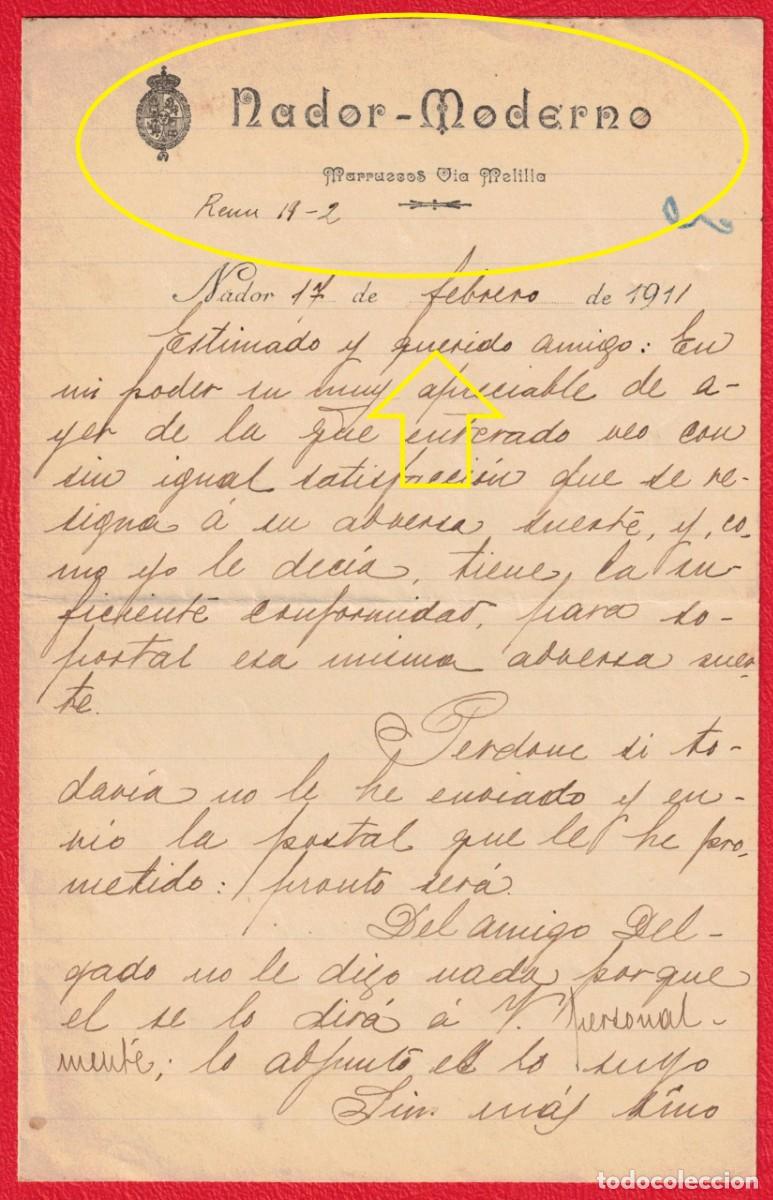 Nador-Moderno
Marruecos Via Melilla
19-2
Nador 17 de febrero de 1911
Estimado y querido amigo: En
mi poder su muy apreciable de a-
yer de la que enterado veo con
sin igual satisfacción que se re-
signa á su adversa suerte, y, co-
mo yo le decía, tiene la su-
ficiente conformidad, para so-
portal esa misma adversa suer-
te.
Perdone si to-
davía no le he enviado y en-
vio la postal que le he pro-
metido: pronto será.
Del amigo Del-
gado no le digo nada porque
el se lo dirá á V. personal-
mente; lo adjunto es lo suyo
Sin más sino
todocoleccion